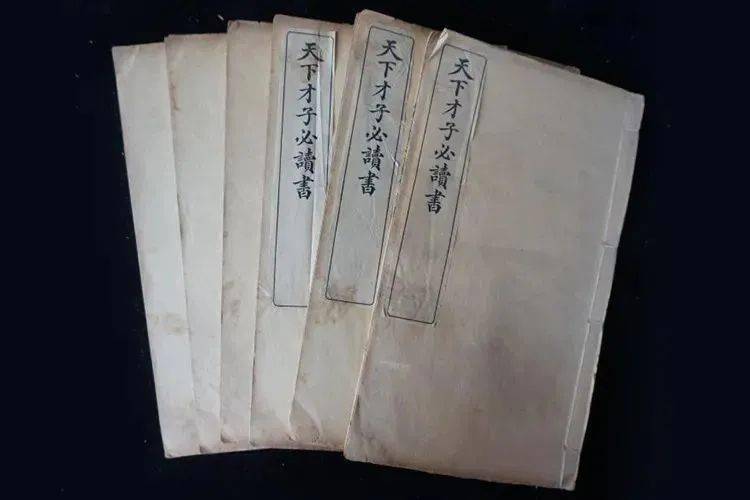 天下才子必讀書
天下才子必讀書
天下才子必讀書